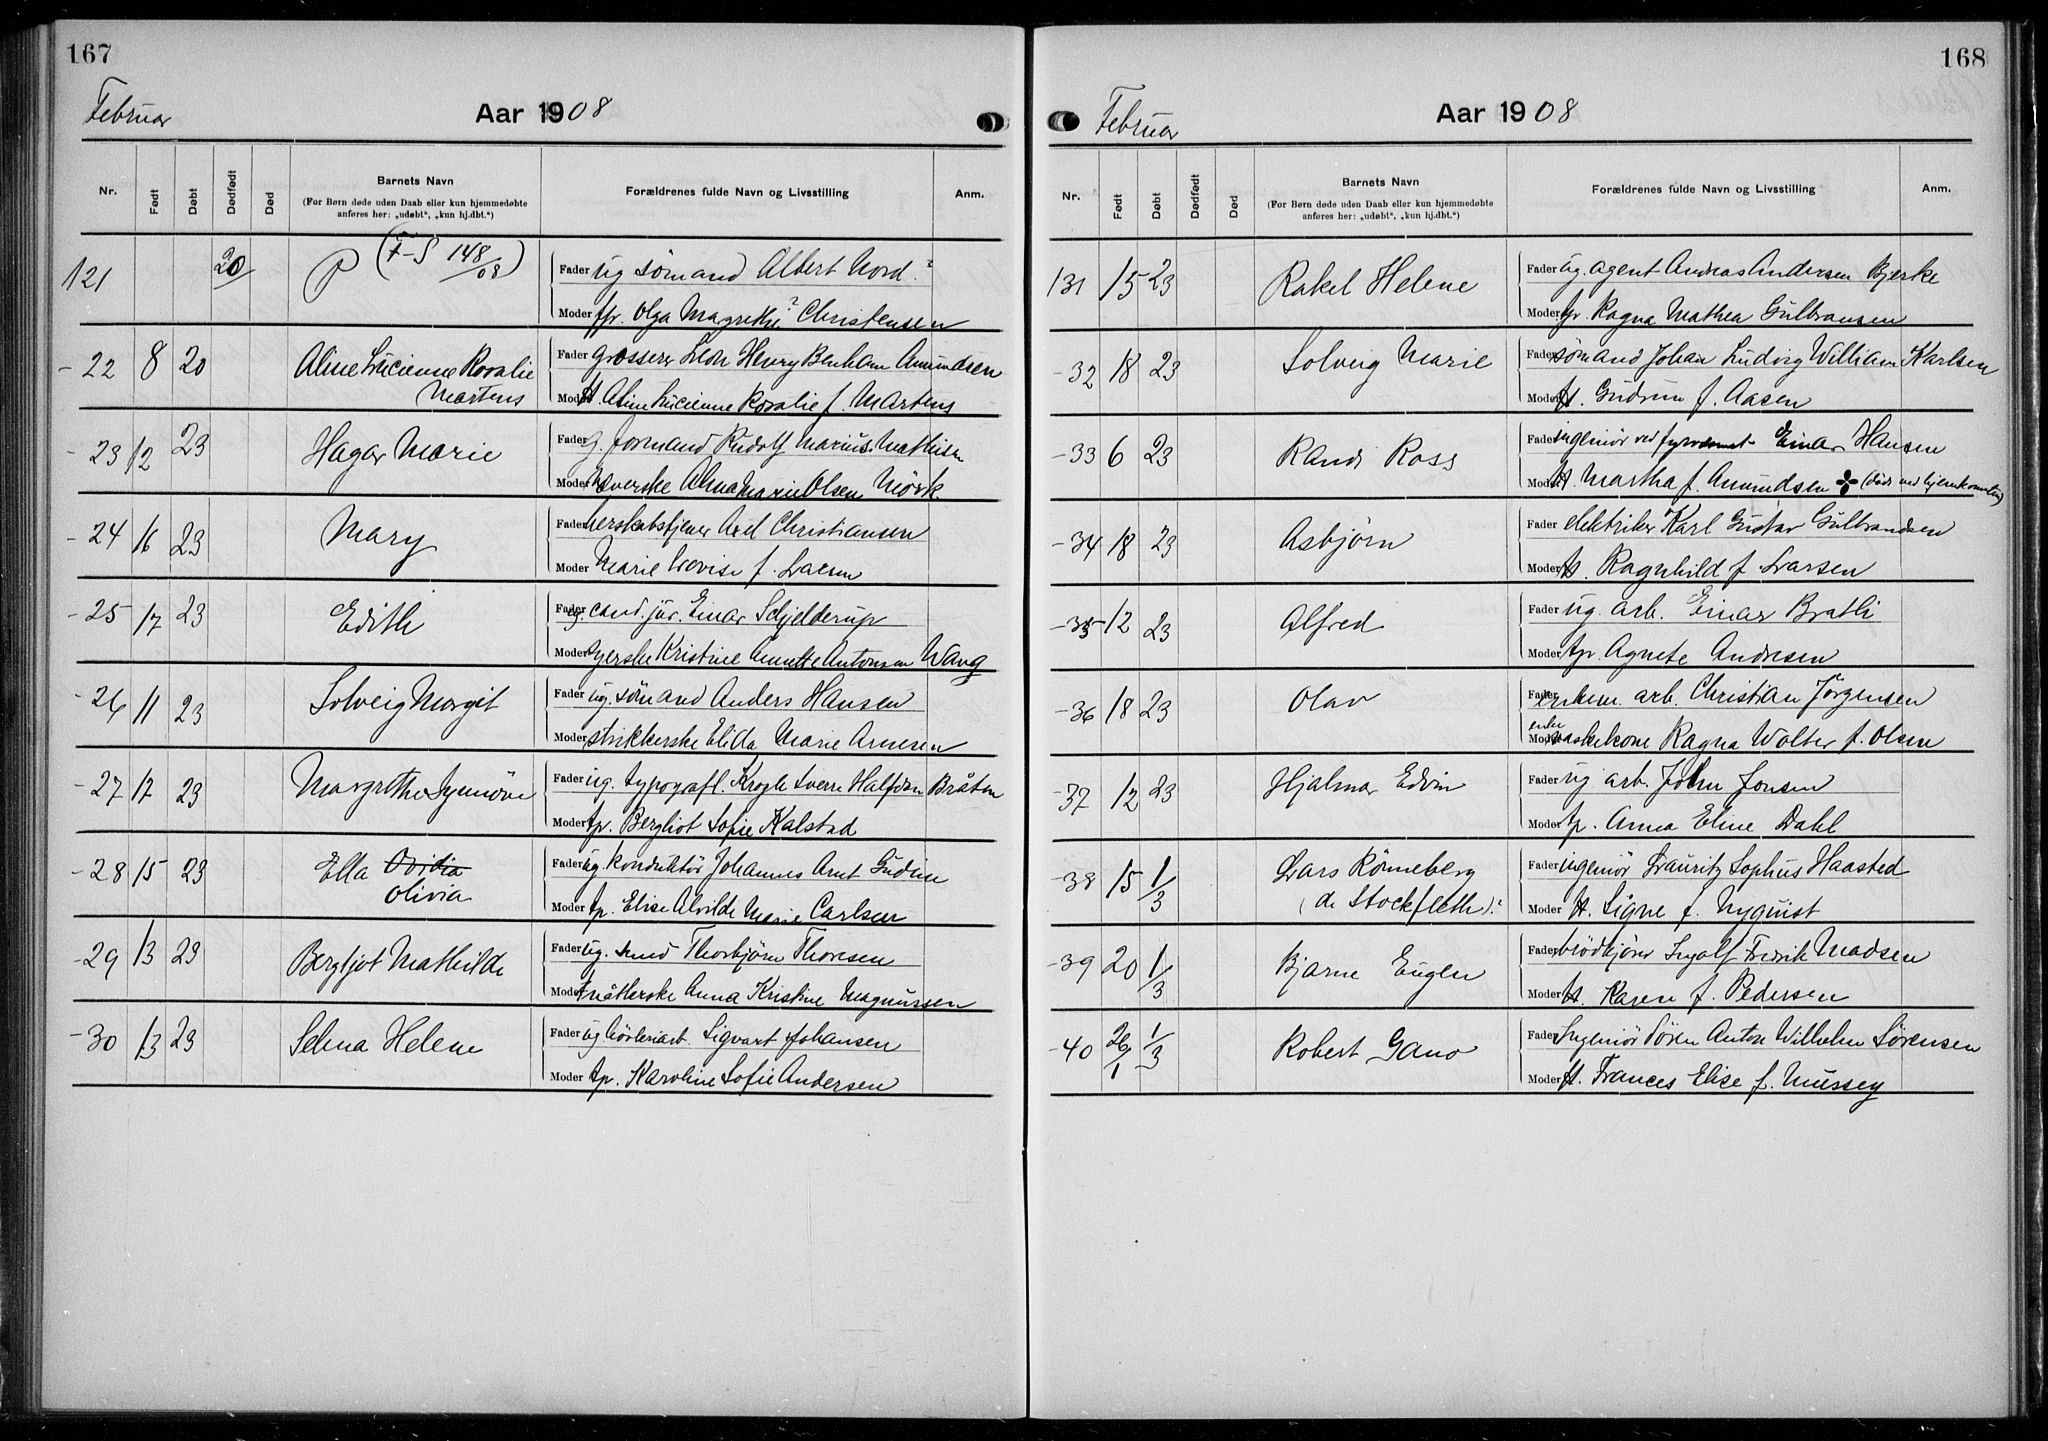 167
Februar
Aar 1908
Nr. Født Døbt Dødfødt Død Barnets Navn Forældrenes fulde Navn og Livsstilling Anm.
(For Børn døde uden Daab eller kun hjemmedøbte
anføres her: „udøbt“, „kun hj.dbt.“)
121 20 P (F-S 148/08) Fader ug sømand Albert Nord ?
Moder tp. Olga Magrethe ? Christensen
-22 8 20 Aline Lucienne Rosalie Fader grosserer Leon Henry Benham Amundsen
Martens Moder H. Aline Lucienne Rosalie f. Martens
-23 12 23 Hagar Marie Fader g. formand Rudolf Marius Mathisen
Moder væverske Alma Marie Olsen Mørk.
-24 16 23 Mary Fader herskabstjener Axel Christiansen
Moder Marie Lovise f. Larsen
-25 17 23 Edith Fader ug. cand. jur. Einar Schjelderup
Moder syerske Kristine Annette Antonsen Wang
-26 11 23 Solveig Margit Fader ug. sømand Anders Hansen
Moder strikkerske Elida Marie Arnesen
-27 17 23 Margrethe Synnøve Fader ug. typograf Krogh Sverre Halfdan Bråten
Moder tp. Bergliot Sofie Kalstad
-28 15 23 Ella Ovidia Fader ug. konduktør Johannes Arnt Gudine
Olivia Moder tp. Elise Alvilde Marie Carlsen
-29 13 23 Bergljot Mathilde Fader ug. smed Thorbjørn Thoresen
Moder Anna Kristine Magnussen
-30 13 23 Selma Helene Fader ug Sigvart Johansen
Moder tp. Karoline Sofie Andersen
168
Februar
Aar 1908
Nr. Født Døbt Dødfødt Død Barnets Navn Forældrenes fulde Navn og Livsstilling Anm.
(For Børn døde uden Daab eller kun hjemmedøbte
anføres her: „udøbt“, „kun hj.dbt.“)
131 15 23 Rakel Helene Fader ug. agent Andreas Andersen Bjerke
Moder tp. Ragna Mathea Gulbransen
-32 18 23 Solveig Marie Fader sømand Johan Ludvig William Karlsen
Moder H. Gudrun f. Aasen
-33 6 23 Randi Ross Fader ingeniør ved fyrvæsenet Einar Hansen
Moder H. Martha f. Amundsen (død ved hjemkomsten)
-34 18 23 Asbjørn Fader elektriker Karl Gustav Gulbrandsen
Moder H. Ragnhild f. Larsen
-35 12 23 Alfred Fader ug. arb. Einar Bratli
Moder tp. Agnete Andresen
-36 18 23 Olav Fader enkem. arb. Christian Jørgensen
Moder enke vaskekone Ragna Wolter f. Olsen
-37 12 23 Hjalmar Edvin Fader ug arb. John Jonsen
Moder tp. Anna Eline Dahl
-38 15 1/3 Lars Rønneberg Fader ingeniør Lauritz Sophus Haasted
(de Stockfleth)? Moder H. Signe f. Nyquist
-39 20 1/3 Bjarne Eugen Fader brødkjører Ingolf Fredrik Madsen
Moder H. Karen f. Pedersen
-40 26/1 1/3 Robert Gano Fader Ingeniør Søren Anton Wilhelm Sørensen
Moder H. Frances Elise f. Mussey